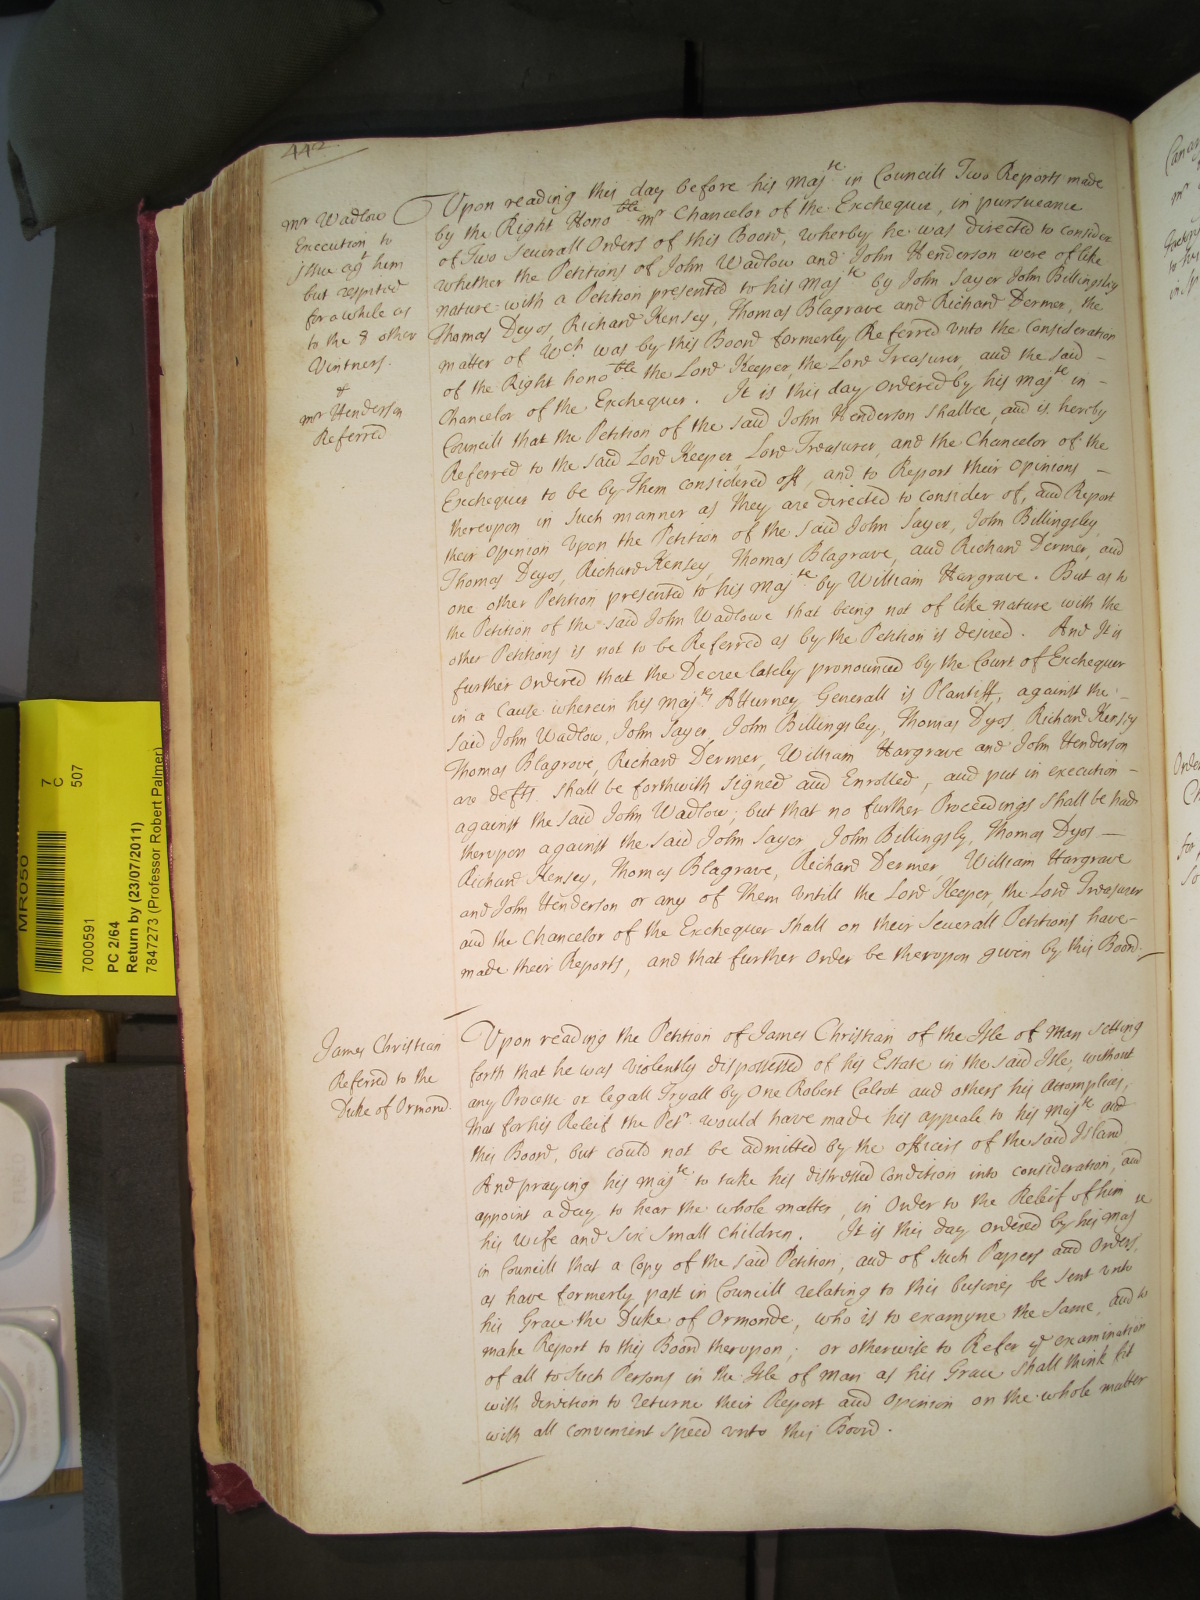 442
mr Wadlow
Execution to
issue agt him
but respited
for a while as
to the 8 other
Vintners.
&
mr Henderson
Referred
Upon reading this day before his Majte in Councill Two Reports made
by the Right Honoble mr Chancelor of the Exchequer, in pursueance
of Two Severall Orders of this Board, wherby he was directed to consider
whether the Petitions of John Wadlow and John Henderson were of like
nature with a Petition presented to his Majte by John Sayer John Billingsly
Thomas Deyos, Richard Kensey, Thomas Blagrave and Richard Dermer, the
matter of Wch was by this Board formerly Referred vnto the Consideration
of the Right honoble the Lord Keeper, the Lord Treasurer, and the said
Chancelor of the Exchequer. It is this day Ordered by his Majte in
Councill that the Petition of the said John Henderson shallbee, and is hereby
Referred to the said Lord Keeper, Lord Treasurer, and the Chancelor of the
Exchequer to be by Them considered off, and to Report their Opinions
thereupon in such manner as They are directed to consider of, and Report
their Opinion Vpon the Petition of the said John Sayer, John Billingsley,
Thomas Deyos, Richard Kensey, Thomas Blagrave, and Richard Dermer, and
one other Petition presented to his Majte by William Hargrave. But as to
the Petition of the said John Wadlowe that being not of like nature with the
other Petitions is not to be Referred as by the Petition is desired. And It is
further Ordered that the Decree lately pronounced by the Court of Exchequer
in a Cause wherein his Majtes Atturney Generall is Plantiff, against the
said John Wadlow, John Sayer, John Billingsley, Thomas Dyos, Richard Kensey
Thomas Blagrove, Richard Dermer, William Hargrave and John Henderson
are defts. shall be forthwith signed and Enrolled, and put in execution
against the said John Wadlow; but that no further Proceedings shall be had
therupon against the said John Sayer, John Billingsly, Thomas Dyos
Richard Kensey, Thomas Blagrave, Richard Dermer, William Hargrave
and John Henderson or any of Them vntill the Lord Keeper, the Lord Treasurer
and the Chancelor of the Exchequer shall on their Severall Petitions have
made their Reports, and that further Order be therupon given by this Board.
James Christian
Referred to the
Duke of Ormond.
Vpon reading the Petition of James Christian of the Isle of Man setting
forth that he was violently dispossessed of his Estate in the said Isle, without
any Processe or legall Tryall by One Robert Calrot and others his Accomplices,
that for his Releif the Petr would have made his appeale to his Majte and
this Board, but could not be admitted by the officers of the said Island,
And praying his Majte to take his distressed Condition into consideration, and
appoint a day to hear the whole matter, in Order to the Releif of him
his Wife and six small children. It is this day Ordered by his Majte
in Councill that a Copy of the said Petition, and of such Papers and Orders,
as have formerly past in Councill relating to this busines be sent vnto
his Grace the Duke of Ormonde, who is to examyne the same, and to
make Report to this Board therupon; or otherwise to Refer ye examination
of all to such Persons in the Isle of Man as his Grace shall think fit
with direction to returne their Report and Opinion on the whole matter
with all convenient speed vnto this Board.
MR050
7
C
507
7000591
PC 2/64
Return by (23/07/2011)
7847273 (Professor Robert Palmer)